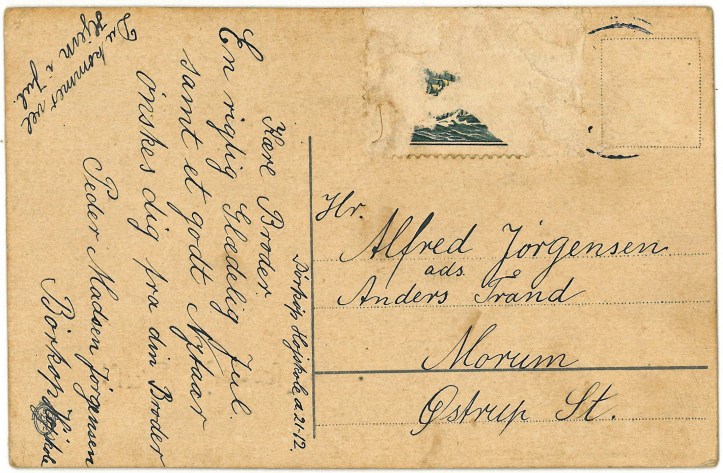 Børkop Højskole d 21-12.
Kære Broder.
En rigtig Glædelig Jul.
samt et godt Nytaar
ønskes dig fra din Broder
Peder Madsen Jørgensen
Børkop Højskole
Du kommer vel
Hjem i Jul.
Hr.
Alfred Jørgensen
ads.
Anders Trand
Morum
Østrup St.